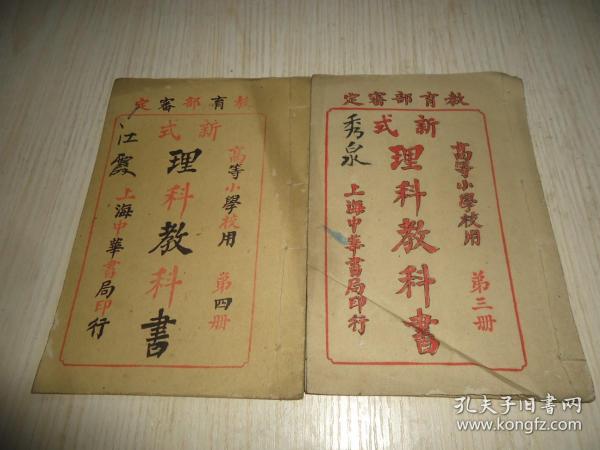 教育部審定
高等小學校用 第四册
新式
理科教科書
上海中華書局印行
江霞
教育部審定
高等小學校用 第三册
新式
理科教科書
上海中華書局印行
秀泉
孔夫子旧書网
www.kongfz.com